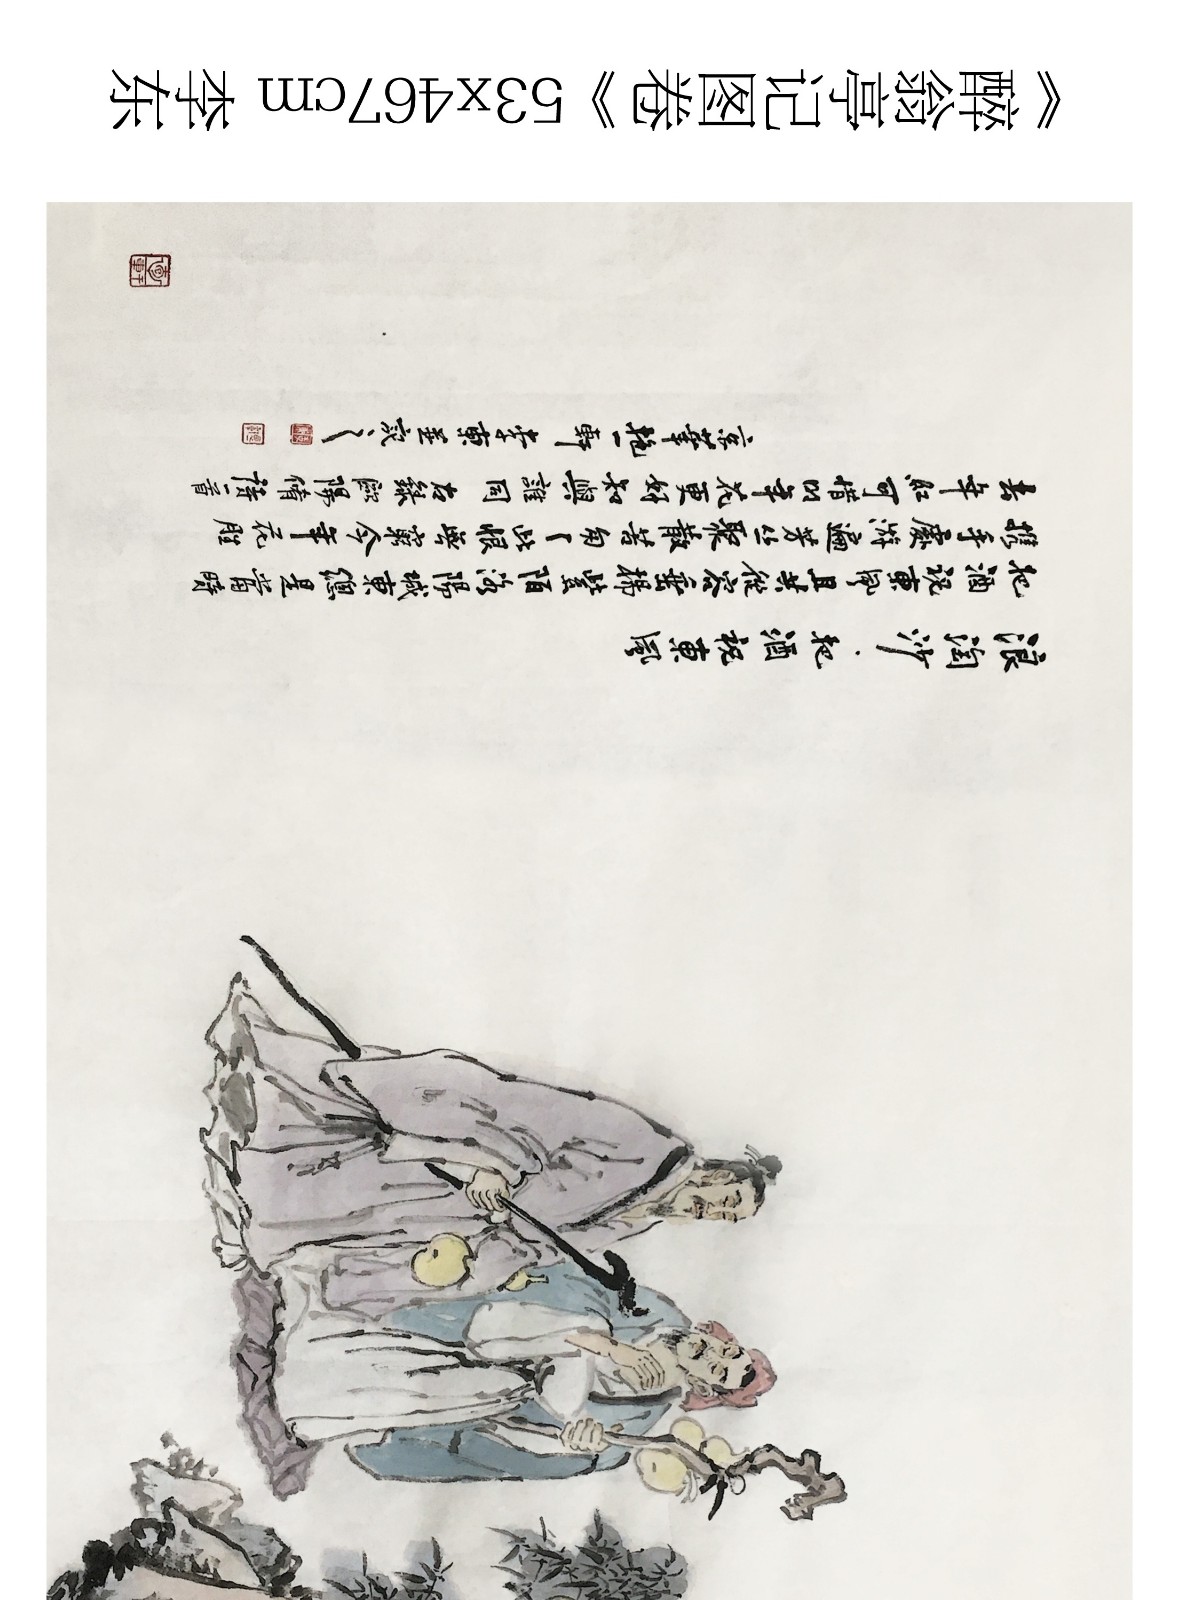 《醉翁亭记图卷》53x467cm 李东
浪淘沙·把酒祝東風
把酒祝東風且共從容垂楊紫陌洛陽城東總是當時
攜手處游遍芳叢聚散苦匆匆此恨無窮今年花勝
去年紅可惜明年花更好知與誰同右錄歐陽脩詩一首
京華艳一軒李東並識之